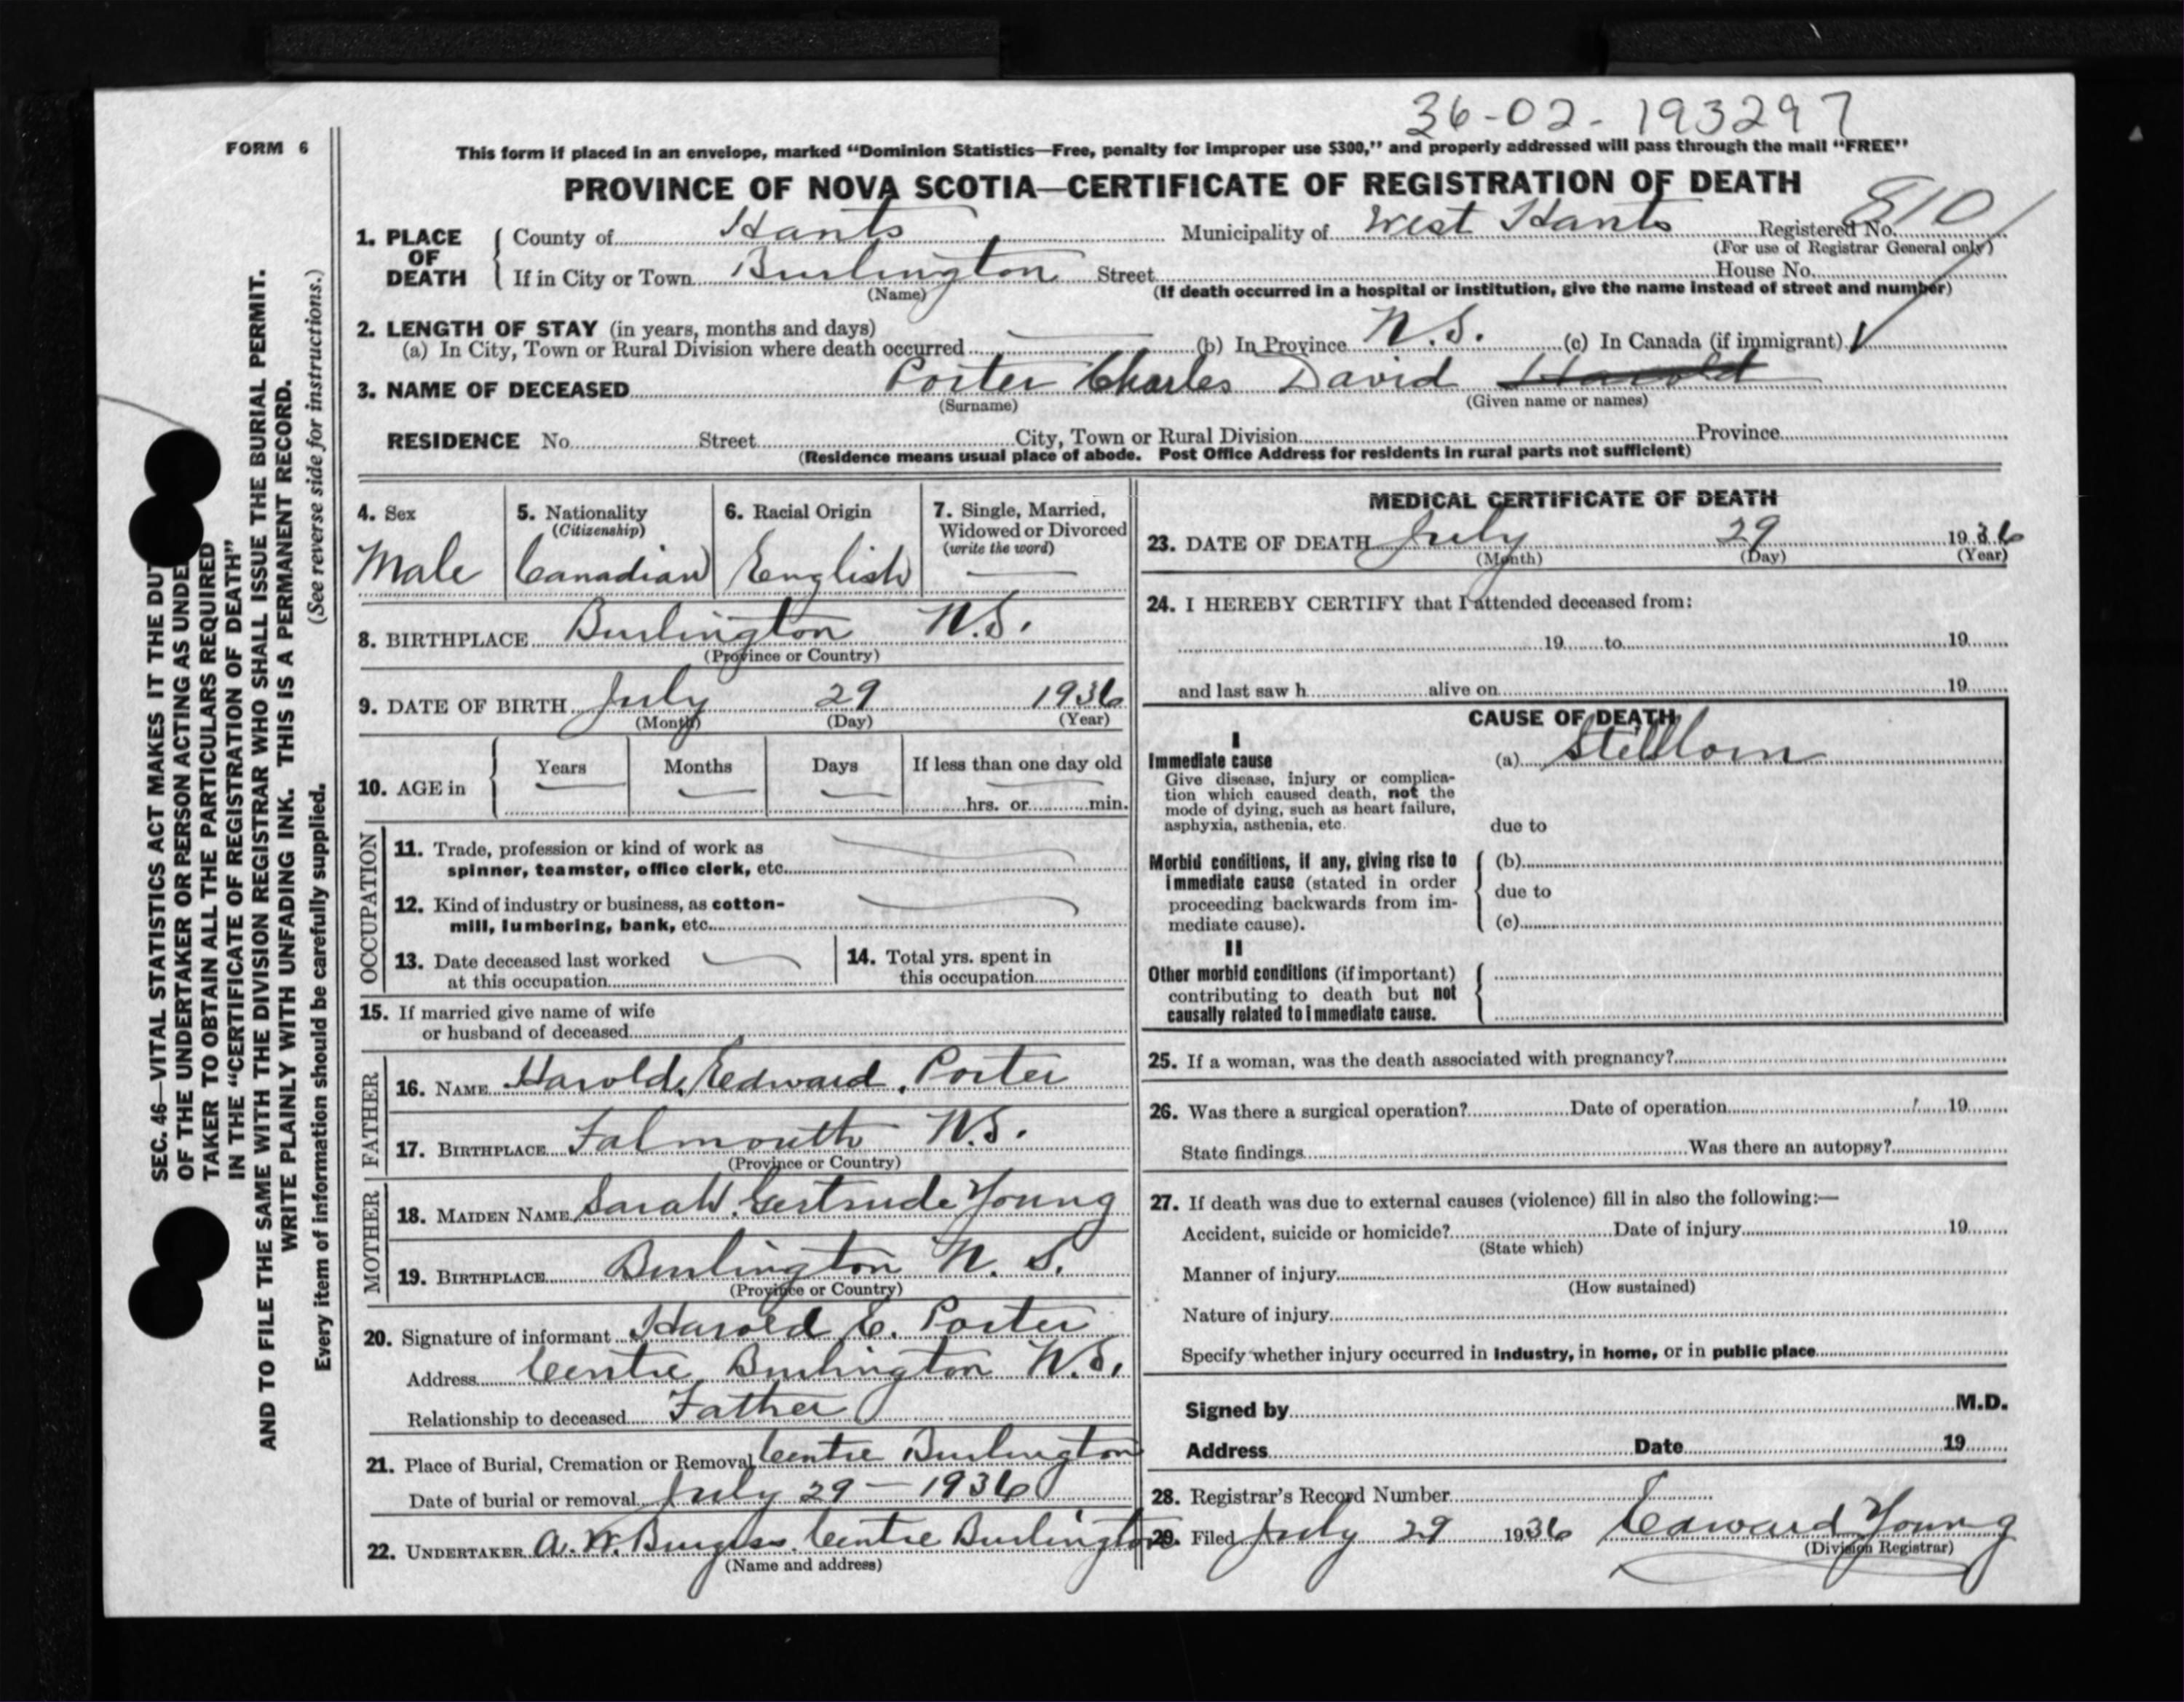 36-02-193297
FORM 6
This form if placed in an envelope, marked "Dominion Statistics—Free, penalty for improper use $300," and properly addressed will pass through the mail "FREE"
PROVINCE OF NOVA SCOTIA—CERTIFICATE OF REGISTRATION OF DEATH
1. PLACE OF DEATH { County of Hants Municipality of West Hants Registered No. 810
(For use of Registrar General only)
If in City or Town Burlington Street House No.
(Name) (If death occurred in a hospital or institution, give the name instead of street and number)
2. LENGTH OF STAY (in years, months and days)
(a) In City, Town or Rural Division where death occurred — (b) In Province N.S. (c) In Canada (if immigrant)
3. NAME OF DECEASED Porter Charles David Harold
(Surname) (Given name or names)
RESIDENCE No. Street City, Town or Rural Division Province
(Residence means usual place of abode. Post Office Address for residents in rural parts not sufficient)
4. Sex 5. Nationality 6. Racial Origin 7. Single, Married,
(Citizenship) Widowed or Divorced
(write the word)
Male Canadian English —
8. BIRTHPLACE Burlington N.S.
(Province or Country)
9. DATE OF BIRTH July 29 1936
(Month) (Day) (Year)
10. AGE in { Years Months Days If less than one day old
— — — — hrs. or min.
OCCUPATION
11. Trade, profession or kind of work as
spinner, teamster, office clerk, etc.
12. Kind of industry or business, as cotton-
mill, lumbering, bank, etc.
13. Date deceased last worked 14. Total yrs. spent in
at this occupation this occupation
15. If married give name of wife
or husband of deceased
FATHER
16. NAME Harold Edward Porter
17. BIRTHPLACE Falmouth N.S.
(Province or Country)
MOTHER
18. MAIDEN NAME Sarah Gertrude Young
19. BIRTHPLACE Burlington N.S.
(Province or Country)
20. Signature of informant Harold E. Porter
Address Centre Burlington N.S.
Relationship to deceased Father
21. Place of Burial, Cremation or Removal Centre Burlington
Date of burial or removal July 29 — 1936
22. UNDERTAKER A. W. Burgess. Centre Burlington
(Name and address)
MEDICAL CERTIFICATE OF DEATH
23. DATE OF DEATH July 29 1936
(Month) (Day) (Year)
24. I HEREBY CERTIFY that I attended deceased from:
19 to 19
and last saw h alive on 19
CAUSE OF DEATH
I
Immediate cause (a) Stillborn
Give disease, injury or complica-
tion which caused death, not the
mode of dying, such as heart failure,
asphyxia, asthenia, etc. due to
Morbid conditions, if any, giving rise to (b)
immediate cause (stated in order due to
proceeding backwards from im-
mediate cause). (c)
II
Other morbid conditions (if important)
contributing to death but not
causally related to immediate cause.
25. If a woman, was the death associated with pregnancy?
26. Was there a surgical operation? Date of operation 19
State findings Was there an autopsy?
27. If death was due to external causes (violence) fill in also the following:—
Accident, suicide or homicide? Date of injury 19
(State which)
Manner of injury
(How sustained)
Nature of injury
Specify whether injury occurred in Industry, in home, or in public place
Signed by M.D.
Address Date 19
28. Registrar's Record Number
29. Filed July 29 1936 Edward Young
(Division Registrar)
SEC. 46—VITAL STATISTICS ACT MAKES IT THE DUT
OF THE UNDERTAKER OR PERSON ACTING AS UNDE
TAKER TO OBTAIN ALL THE PARTICULARS REQUIRED
IN THE "CERTIFICATE OF REGISTRATION OF DEATH"
AND TO FILE THE SAME WITH THE DIVISION REGISTRAR WHO SHALL ISSUE THE BURIAL PERMIT.
WRITE PLAINLY WITH UNFADING INK. THIS IS A PERMANENT RECORD.
Every item of information should be carefully supplied. (See reverse side for instructions.)